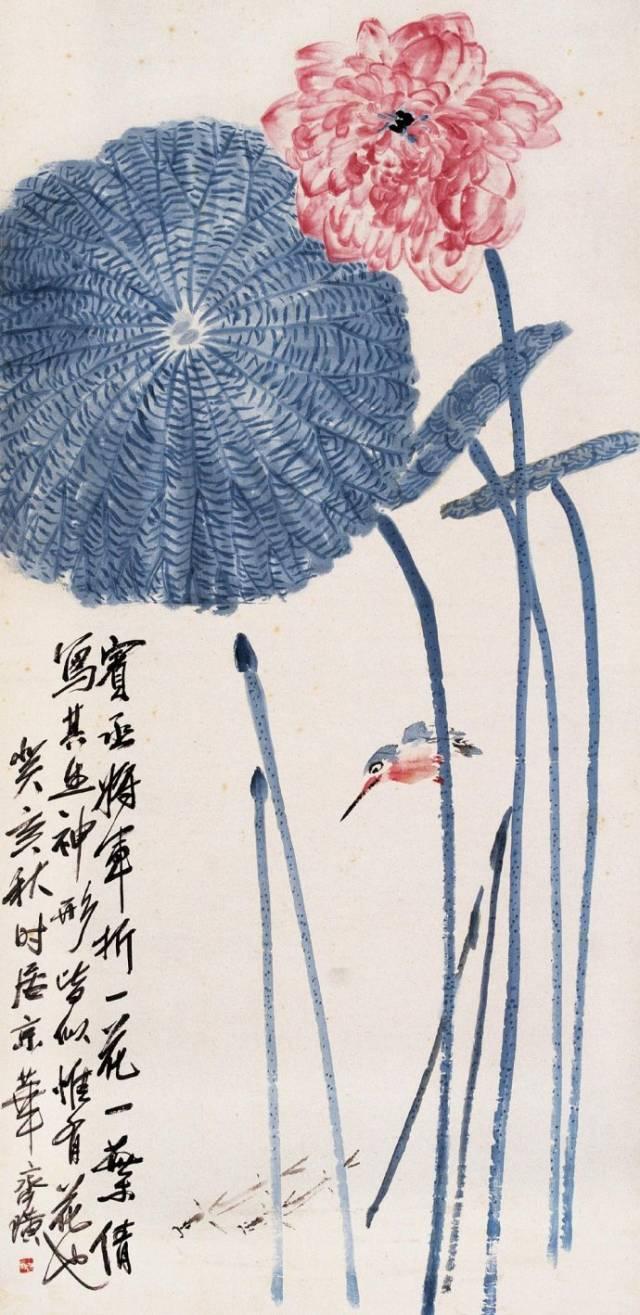 丞將軍折一花一葉倩
寫其神形皆似惟有花也
癸亥秋时居京華齊璜